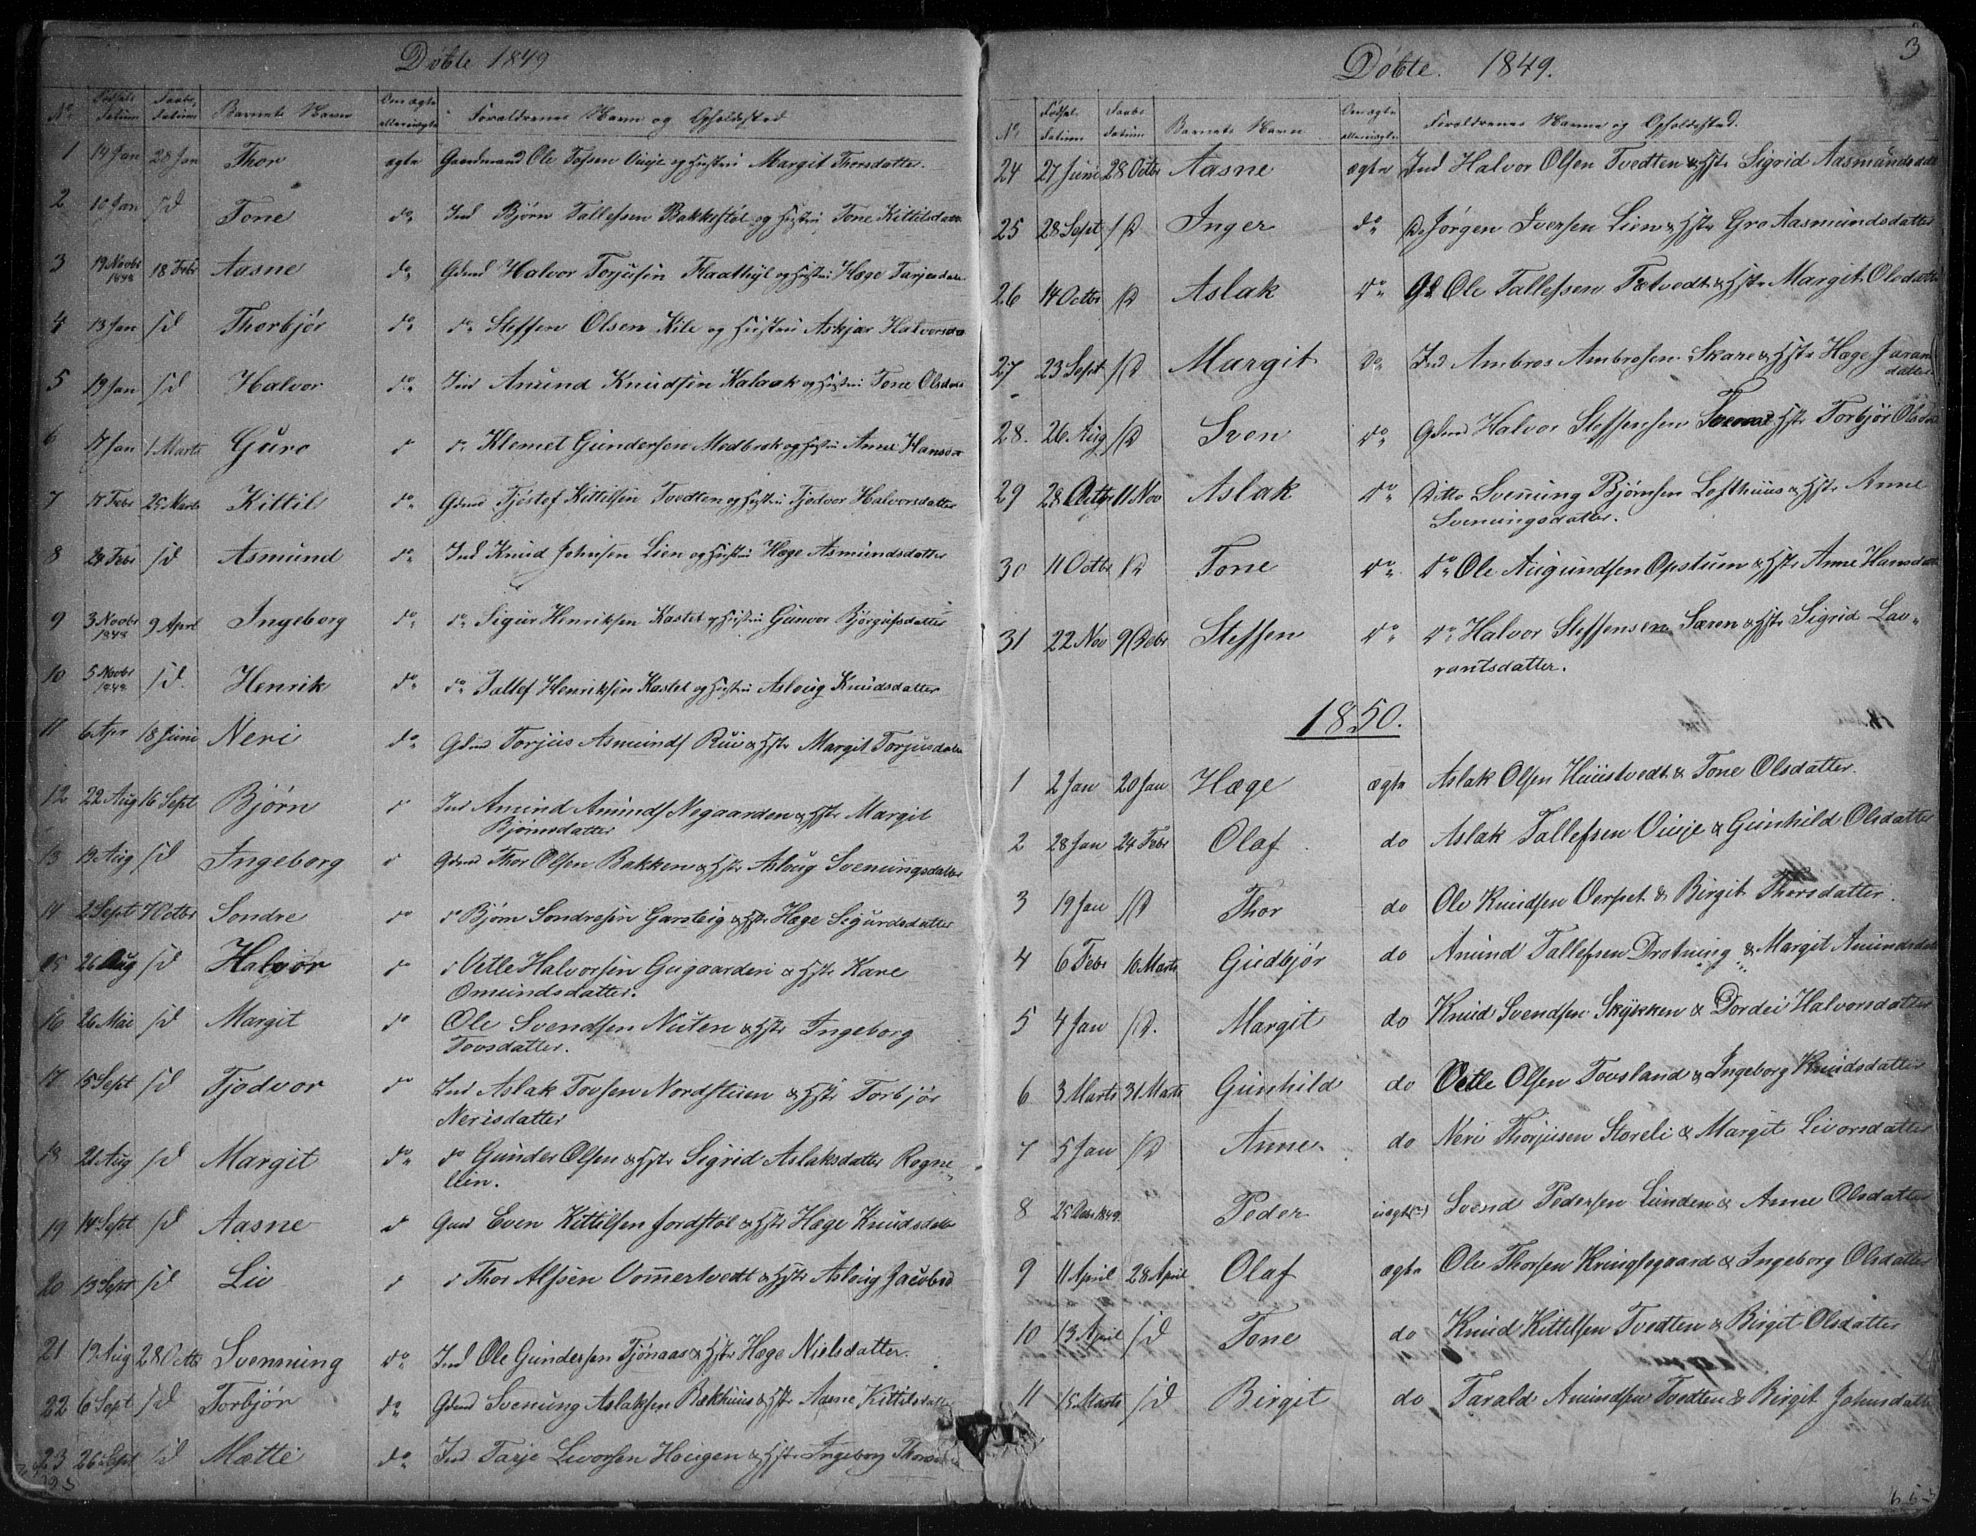 Døbte 1849
No Fødsels Datum Daabs Datum Barnets Navn Om ægte eller uægte Forældrenes Navn og Opholdssted
1 14 Jan 28 Jan Thor ægte Gaardmand Ole Tofsen Vinje og Hustru Margit Thorsdatter.
2 10 Jan s D Tone do Ind Bjørn Tallefsen Bakkestøl og Hustru Tone Kittilsdatter
3 19 Novbr 1848 18 Febr Aasne do Gdmd Halvor Torjusen Flaathyl og Hustru Hæge Tarjeisdatter
4 13 Jan s D Thorbjør do do Steffen Olsen Kile og Hustru Askjær Halvorsda
5 19 Jan s D Halvor do Ind Anund Knudsen Kalaak og Hustru Tone Olsdat
6 17 Jan 1 Marts Guro do do Klemet Gundersen Medbrok og Hustru Anne Hansda
7 17 Febr 25 Marts Kittil do Gdmd Tjøstof Kittilsen Tvedten og Hustru Tjodvor Halvorsdatter
8 24 Febr s D Asmund do Ind Knud Johnsen Lien og Hustru Hæge Asmundsdatter
9 3 Novbr 1848 9 Apri Ingeborg do do Sigur Henriksen Kastet og Hustru Gunvor Bjørgufsdatter
10 5 Novbr 1848 s D. Henrik do do Tallef Henriksen Kastet og Hustru Aslaug Knudsdatter
11 6 Apr 18 Juni Neri do Gdmd Torjus Asmunds Rui & Hstr Margit Torjusdatter
12 22 Aug 16 Sept Bjørn do Ind Amund Amunds Negaarden & Hstr Margit
Bjørnsdatter
13 13 Aug s D Ingeborg do Gdmd Thor Olsen Bakken & Hstr Aslaug Sveinungsdatter
14 2 Sept 7 Octbr Sondre do do Bjørn Sondresen Garsteig & Hstr Hæge Sigurdsdatter
15 26 Aug s D Halvor do do Vetle Halvorsen Gugaarden & Hstr Kare
Omundsdatter.
16 26 Mai s D Margit do Ole Svendsen Nuten & Hstr Ingeborg
Tovsdatter.
17 15 Sept s D Tjodvor do Ind Aslak Tovsen Nordstuen & Hstr Torbjør
Nerisdatter
18 21 Aug s D Margit do do Gunder Olsen & Hstr Sigrid Aslaksdatter Rogne-
lien.
19 14 Sept s D Aasne do Gmd Even Kittilsen Jordstøl & Hstr Hæge Knudsdatter
20 13 Sept s D Liv do do Thor Alfsen Vommertvedt & Hstr Aslaug Jacobsd
21 19 Aug 28 Octb Svenning do Ind Ole Gundersen Tjønaas & Hstr Hæge Nielsdatter.
22 6 Sept s D Torbjør do Gdmd Svenung Aslaksen Bækhuus & Hstr Aasne Kittilsdatter
23 26 Sept s D Mætte do Ind Tarje Livorsen Haugen & Hstr Ingeborg Thors
Døbte. 1849. 3
No Fødsel Datum Daabs Datum Barnets Navn Om ægte eller uægte Forældrenes Navne og Opholdsted.
24 27 Juni 28 Octbr Aasne ægte Ind Halvor Olsen Tvedten & Hstr Sigrid Aasmundsdatt
25 28 Sept s D Inger do Do Jørgen Iversen Lien & Hstr Gro Aasmundsdatter
26 14 Octbr s D Aslak do Gd Ole Tallefsen Tætvedt & Hstr Margit Olsdatter
27 23 Sept s D Margit do Ind Ambros Ambrosen Skare & Hstr Hæge Jaran
datter.
28. 26 Aug s D Sven do Gdmd Halvor Steffensen & Hstr Torbjør Olsdat
29 28 Octb 11 Nov Aslak do Ditto Svenung Bjørnsen Lofthuus & Hstr Anne
Svenungsdatter.
30 11 Octbr s D Tone do do Ole Augundsen Opstum & Hstr Anne Hansdat
31 22 Nov 9 Debr Steffen do do Halvor Steffensen Særen & Hstr Sigrid Lav-
rantsdatter.
1850.
1 2 Jan 20 Jan Hæge ægte Aslak Olsen Huustvedt & Tone Olsdatter.
2 28 Jan 24 Febr Olaf do Aslak Tallefsen Vinje & Gunhild Olsdatter
3 19 Jan s D Thor do Ole Knudsen Verpet & Birgit Thorsdatter.
4 6 Febr 10 Marts Gudbjør do Amund Tallefsen Drotning & Margit Amundsdat
5 4 Jan s D. Margit do Knud Svendsen Skykken & Dordei Halvorsdatter
6 3 Marts 31 Marts Gunhild do Vetle Olsen Tovsland & Ingeborg Knudsdatter
7 5 Jan s D Anne do Neri Thorjusen Storeli & Margit Livorsdatter
8 25 1849. Peder uægte Svend Pedersen Lunden & Anne Olsdatter
9 11 April 28 April Olaf ægte Ole Thorsen Kringlegaard & Ingeborg Olsdatter
10 13 April s D Tone do Knud Kittelsen Tvedten & Birgit Olsdatter
11 15 Marts s D Birgit do Tarald Amundsen Tvedten & Birgit Johnsdatter